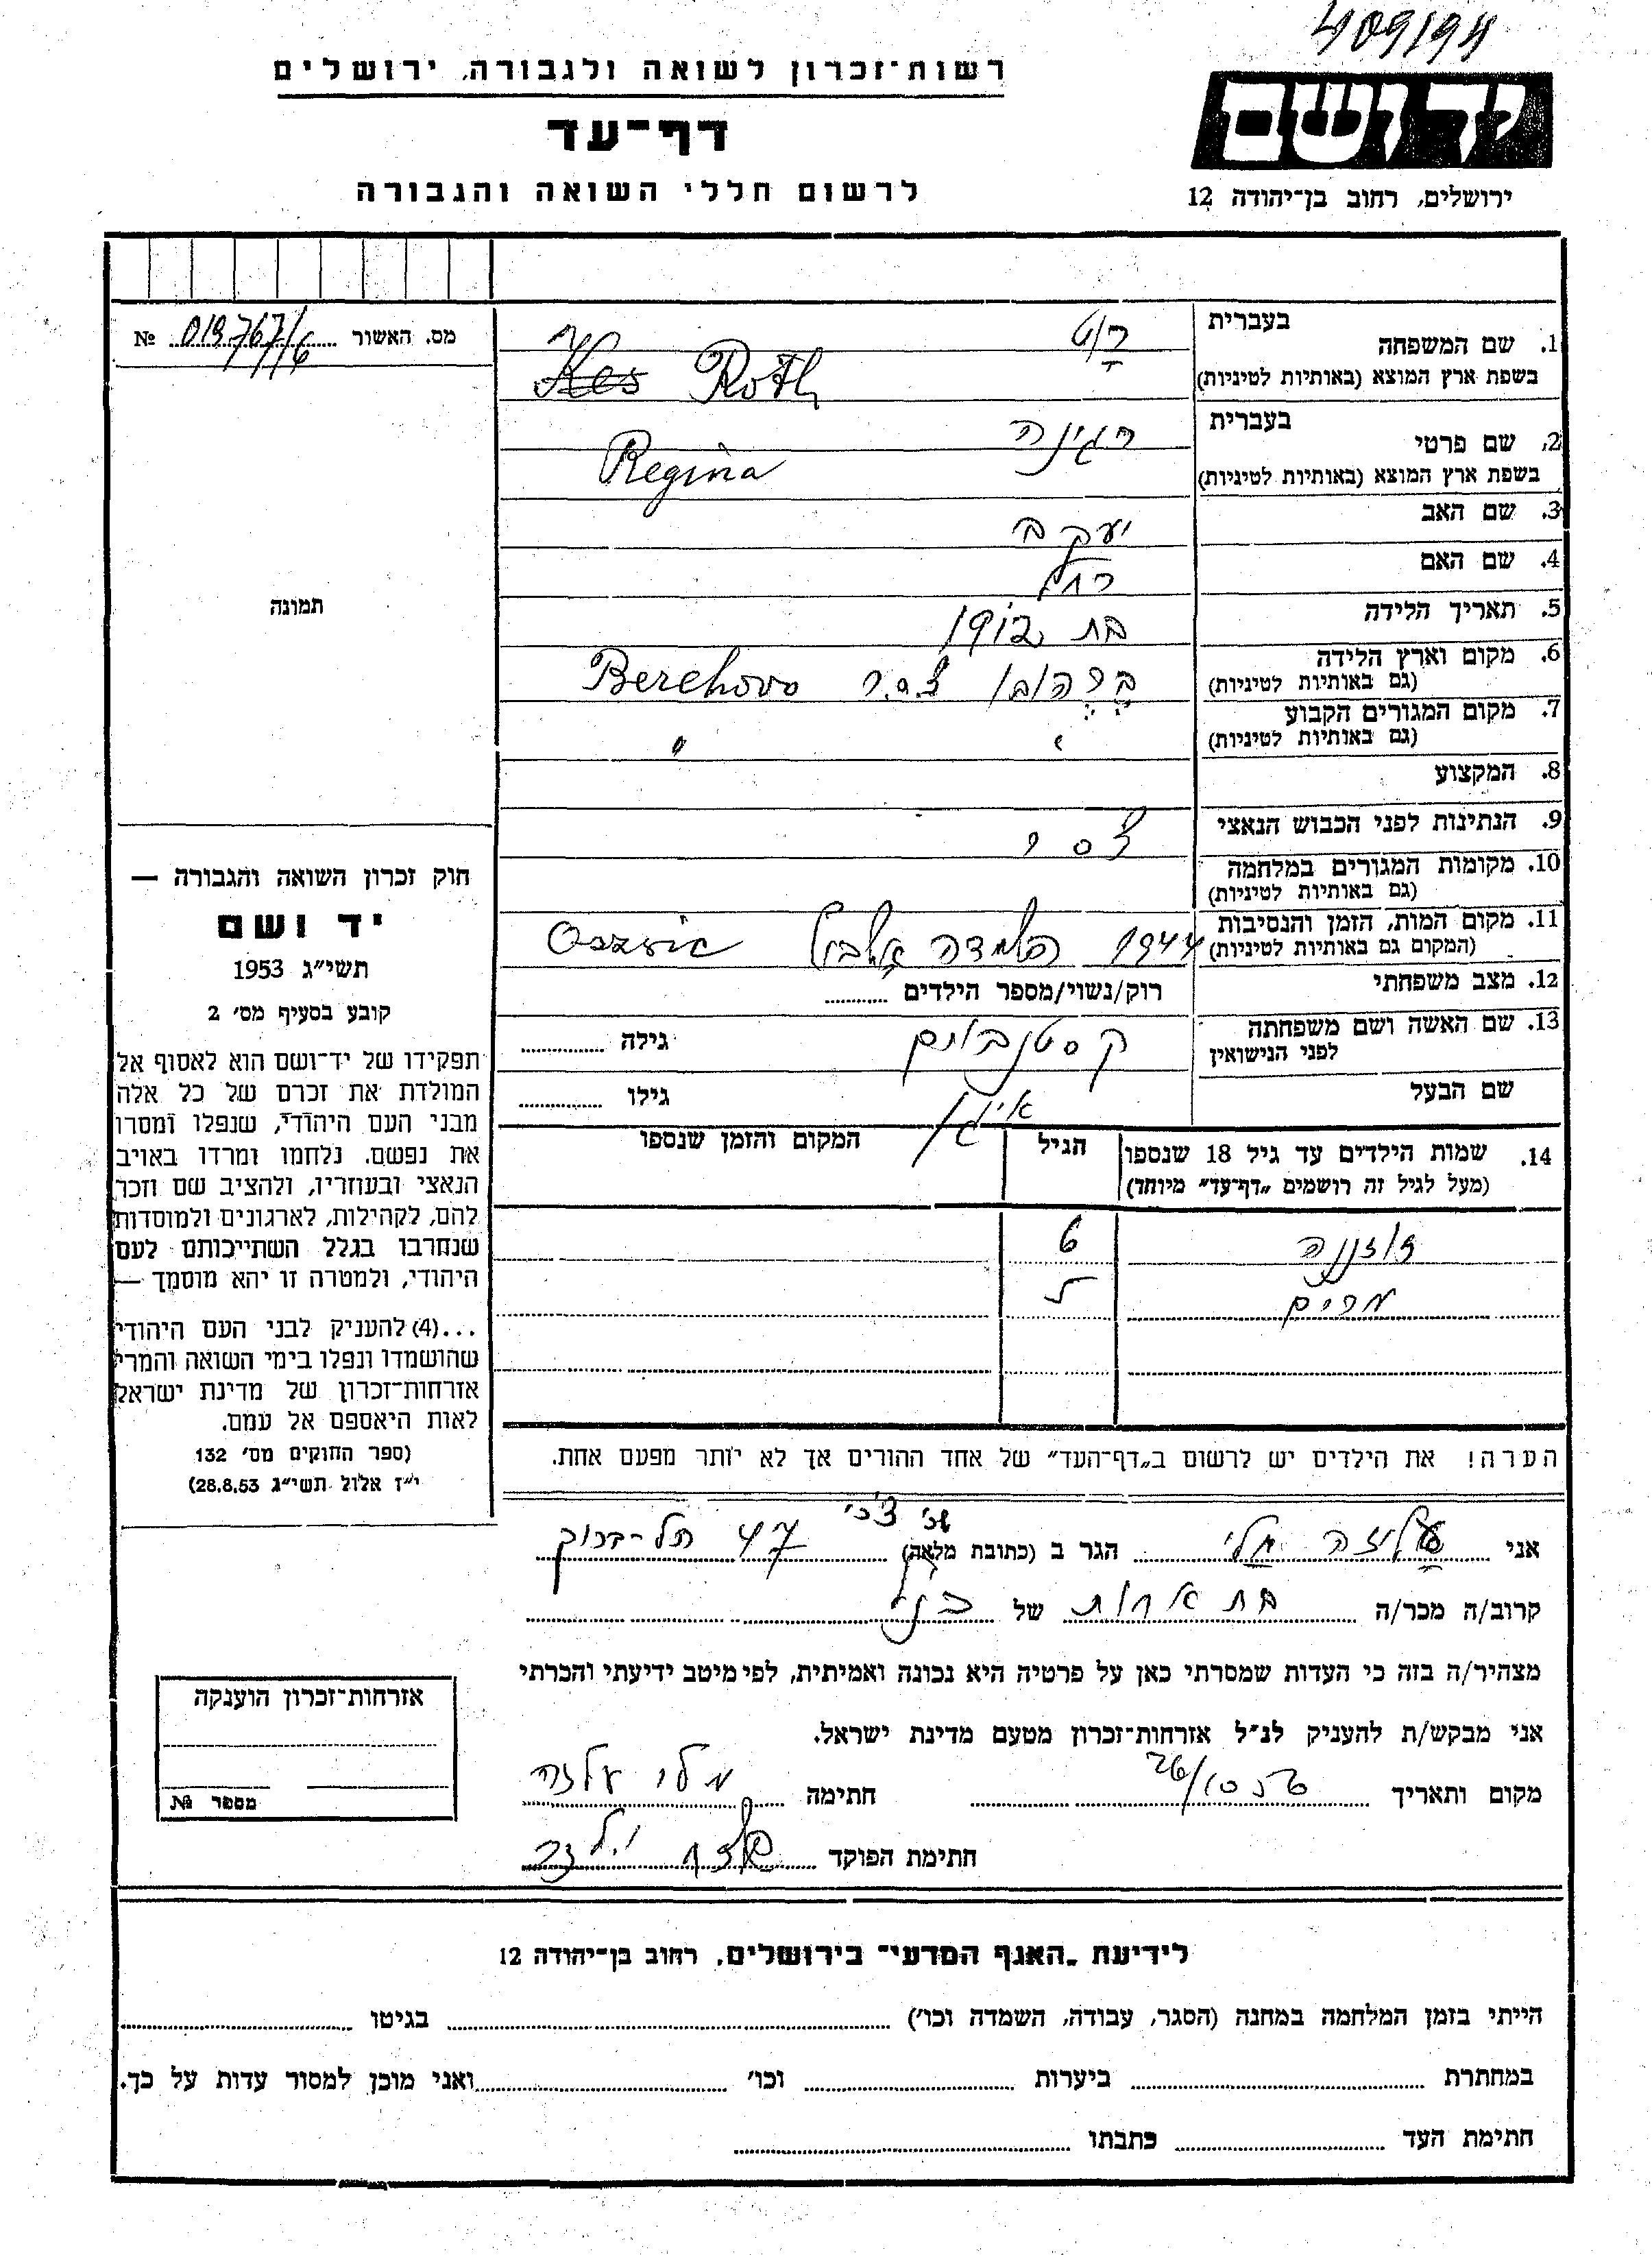 409/94
יד ושם
ירושלים, רחוב בן־יהודה 12
רשות־זכרון לשואה ולגבורה, ירושלים
דף־עד
לרשום חללי השואה והגבורה
מס. האשור № 019767/6
1. שם המשפחה
בעברית רוט
בשפת ארץ המוצא (באותיות לטיניות) Roth
2. שם פרטי
בעברית רגינה
בשפת ארץ המוצא (באותיות לטיניות) Regina
3. שם האב יעקב
4. שם האם רחל
5. תאריך הלידה בת 1912
6. מקום וארץ הלידה ברהובו צ.ס.ר Berehovo
(גם באותיות לטיניות)
7. מקום המגורים הקבוע " "
(גם באותיות לטיניות)
8. המקצוע
9. הנתינות לפני הכבוש הנאצי צ ס ר
10. מקומות המגורים במלחמה
(גם באותיות לטיניות)
11. מקום המות, הזמן והנסיבות 1944 השמדה
(המקום גם באותיות לטיניות)
12. מצב משפחתי רוק/נשוי/מספר הילדים
13. שם האשה ושם משפחתה קסטנבוים גילה
לפני הנישואין
שם הבעל גילו
14. שמות הילדים עד גיל 18 שנספו הגיל המקום והזמן שנספו
(מעל לגיל זה רושמים „דף־עד״ מיוחד)
זוזנה 6
מרים
תמונה
חוק זכרון השואה והגבורה —
יד ושם
תשי״ג 1953
קובע בסעיף מס׳ 2
תפקידו של יד־ושם הוא לאסוף אל
המולדת את זכרם של כל אלה
מבני העם היהודי, שנפלו ומסרו
את נפשם, נלחמו ומרדו באויב
הנאצי ובעוזריו, ולהציב שם וזכר
להם, לקהילות, לארגונים ולמוסדות
שנחרבו בגלל השתייכותם לעם
היהודי, ולמטרה זו יהא מוסמך —
...(4) להעניק לבני העם היהודי
שהושמדו ונפלו בימי השואה והמרי
אזרחות־זכרון של מדינת ישראל
לאות היאספם אל עמם.
(ספר החוקים מס׳ 132
י״ז אלול תשי״ג 28.8.53)
הערה! את הילדים יש לרשום ב„דף־העד״ של אחד ההורים אך לא יותר מפעם אחת.
אני עליזה מלי הגר ב (כתובת מלאה) 47 תל-ברוך
קרוב/ה מכר/ה בת אחות של הנ״ל
מצהיר/ה בזה כי העדות שמסרתי כאן על פרטיה היא נכונה ואמיתית, לפי מיטב ידיעתי והכרתי
אני מבקש/ת להעניק לנ״ל אזרחות־זכרון מטעם מדינת ישראל.
מקום ותאריך חתימה מלי עליזה
חתימת הפוקד
אזרחות־זכרון הוענקה
מספר №
לידיעת „האגף המדעי״ בירושלים, רחוב בן־יהודה 12
הייתי בזמן המלחמה במחנה (הסגר, עבודה, השמדה וכו׳) בגיטו
במחתרת ביערות וכו׳ ואני מוכן למסור עדות על כך.
חתימת העד כתבתו